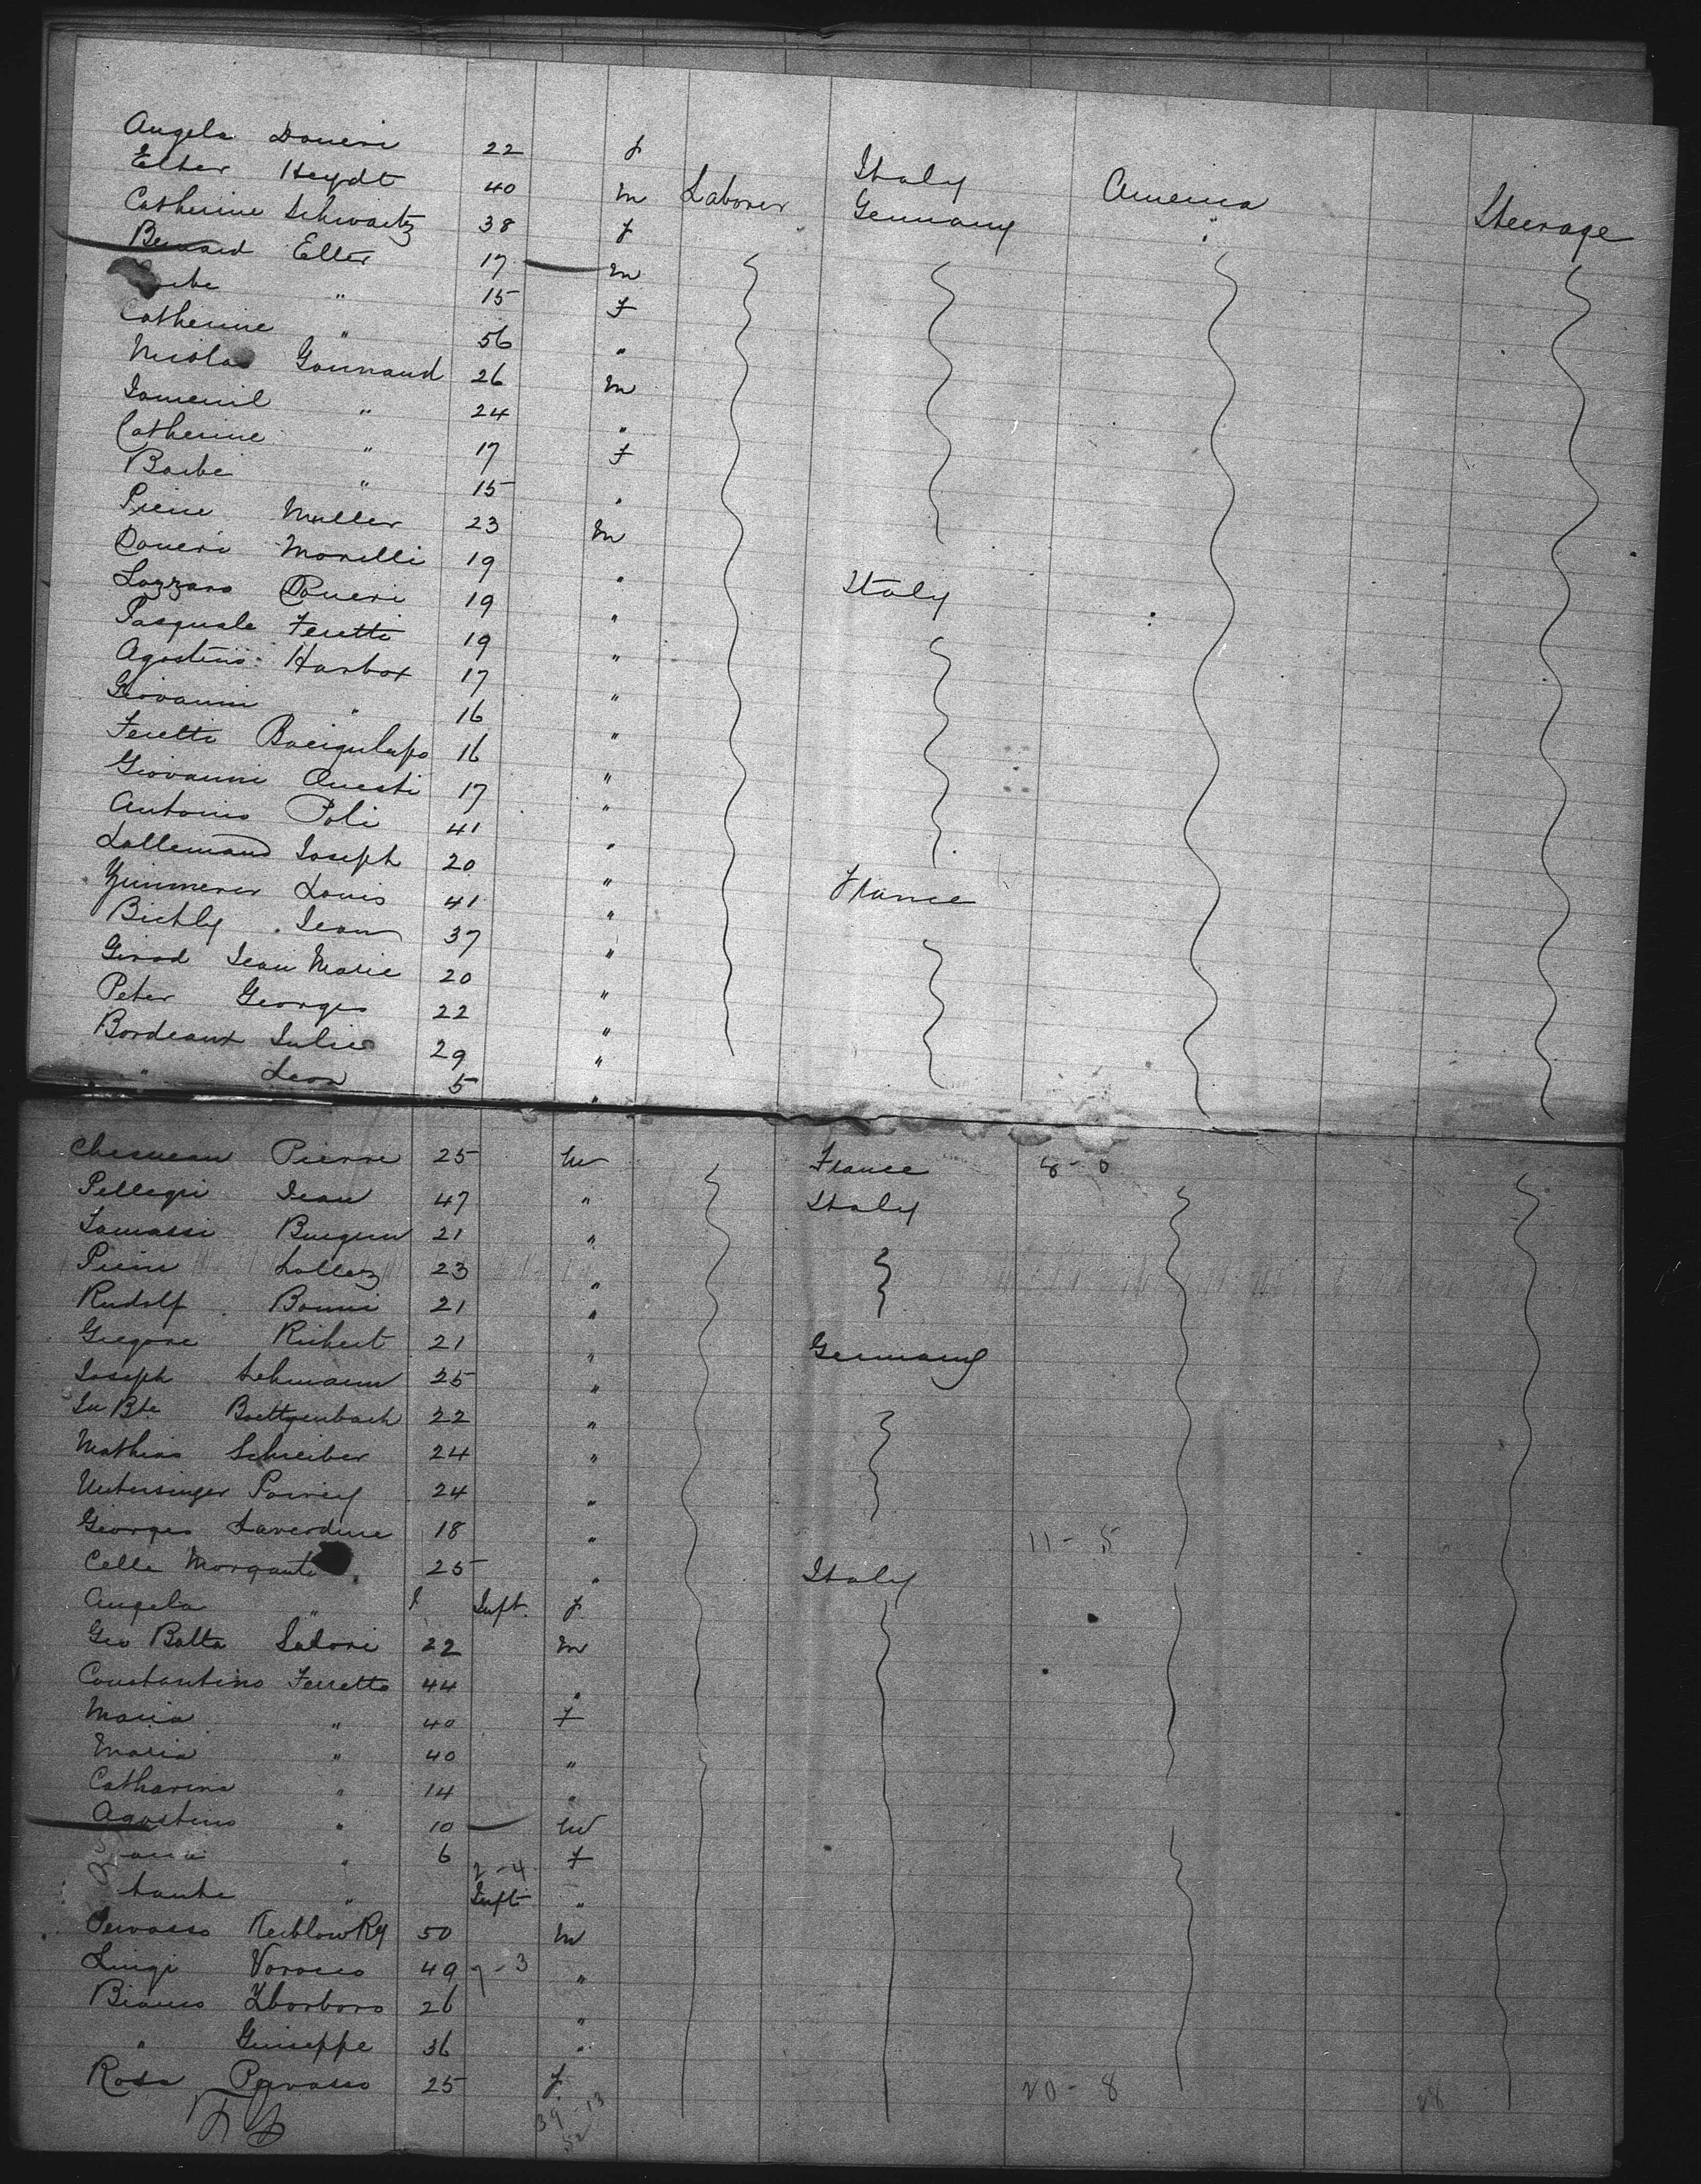 Angela Doueri 22 f Italy America Steerage
Elter Heydt 40 m Laborer Germany "
Catherine Schwartz 38 f
Bernard Elter 17 m
Barbe " 15 f
Catherine " 56 "
Nicolas Gounaud 26 m
" 24 "
Catherine " 17 f
Barbe " 15 "
Pierre Muller 23 m
Doueri Morelli 19 " Italy
Lazzaro Doueri 19 "
Pasquale Feretti 19 "
Agostino Harbox 17 "
Giovanni " 16 "
Feretti Bacigulupo 16 "
Giovanni Questi 17 "
Antonio Poli 41 "
Lallemand Joseph 20 " France
Zimmerer Louis 41 "
Bichly Jean 37 "
Girod Jean Marie 20 "
Peter Georges 22 "
Bordeaux Julies 29 "
" Leon 5 "
Chesneau Pierre 25 m France 8-0
Pellegri Jean 47 " Italy
Tomassi 21 "
Pierre Lallez 23 "
Rudolf Bonni 21 "
Gregore Richert 21 " Germany
Joseph Lehmann 25 "
Jn Bte Boettgenbach 22 "
Mathias Schreiber 24 "
Untersinger 24 "
Georges Laverdine 18 " 11-5
Celle Morgante 25 " Italy
Angela " Inft. f
Gio Batta Sadori 22 m
Constantino Ferretto 44 "
Maria " 40 f
Maria " 40 "
Catharina " 14 "
Agostino " 10 m
" 6 f
2-4
" Inft "
50 m
Luigi Voracco 49 7-3 "
Bianco 26 "
" Giuseppe 36 "
Rosa Pervasso 25 f 20-8 28
39-13
52